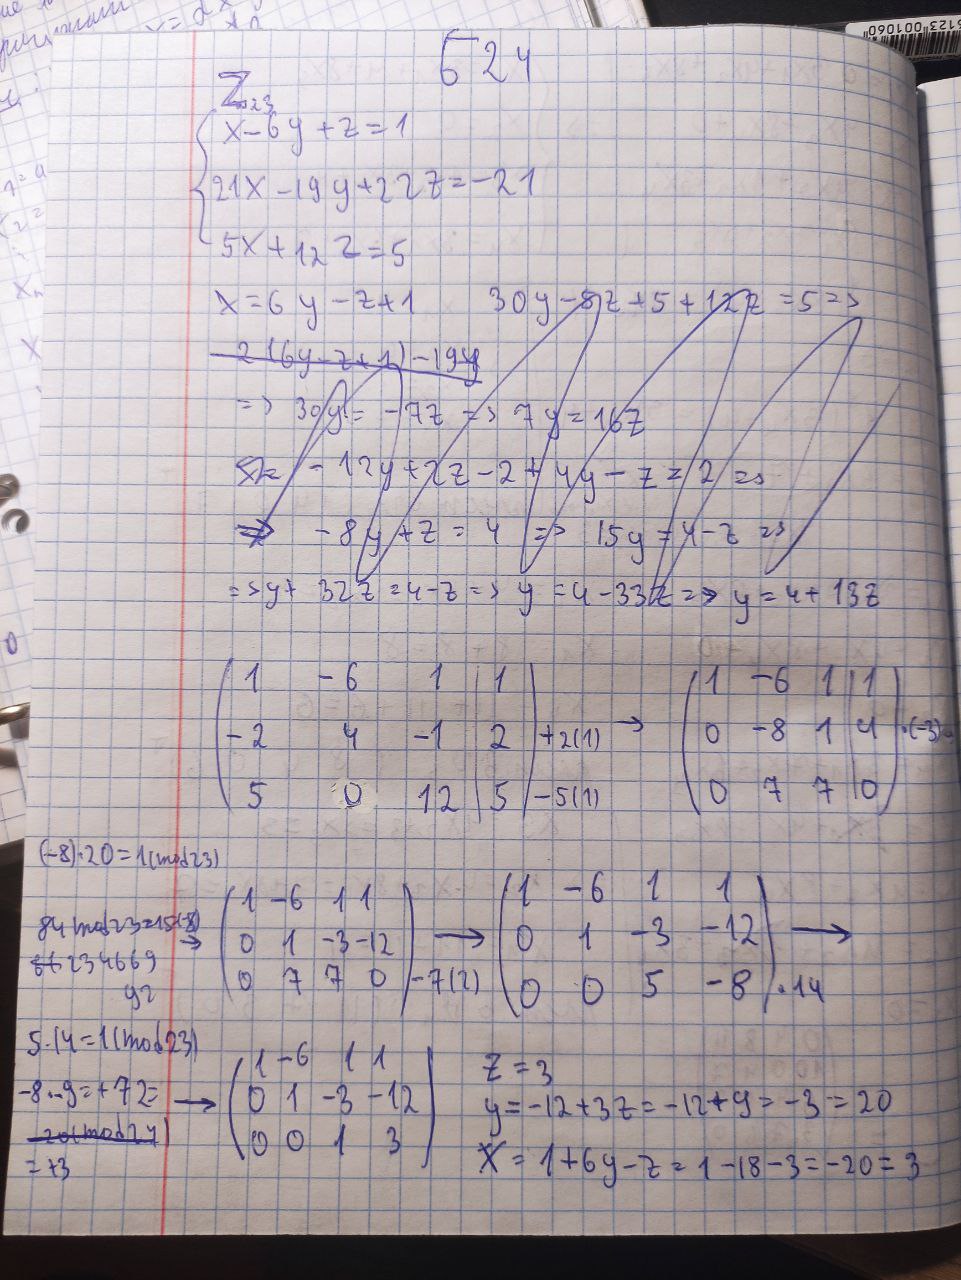 6123 001060
624
Z₂₃
x-6y+z=1
21x-19y+22z=-21
5x+12z=5
x=6y-z+1 30y-8z+5+12z=5=>
2(6y-z+1)-19y
=> 30y=-7z => 7y=16z
-12y+2z-2+4y-z=2 =>
=> -8y+z=4 => 15y=4-z =>
=>y+32z=4-z => y=4-33z => y=4+13z
1 -6 1 | 1
-2 4 -1 | 2 +2(1)
5 0 12 | 5 -5(1)
→
1 -6 1 | 1
0 -8 1 | 4 ·(-3)
0 7 7 | 0
(-8)·20=1(mod23)
84mod23=15(-8)
23 46 69
92
→
1 -6 1 1
0 1 -3 -12
0 7 7 0 -7(2)
→
1 -6 1 1
0 1 -3 -12
0 0 5 -8 ·14
→
5·14=1(mod23)
-8·-9=+72=
=+3
→
1 -6 1 1
0 1 -3 -12
0 0 1 3
z=3
y=-12+3z=-12+9=-3=20
x=1+6y-z=1-18-3=-20=3